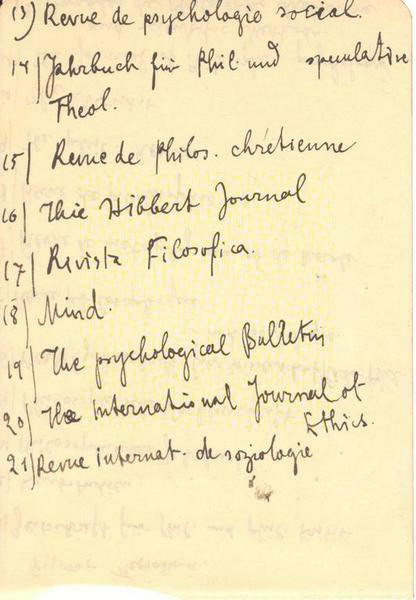 13) Revue de psychologie social.
14) Jahrbuch für Phil. und speculative
Theol.
15) Revue de Philos. chrétienne
16) Thie Hibbert Journal
17) Rivista Filosofica.
18) Mind.
19) The psychological Bulletin
20) The International Journal of
Ethics.
21) Revue internat. de soziologie